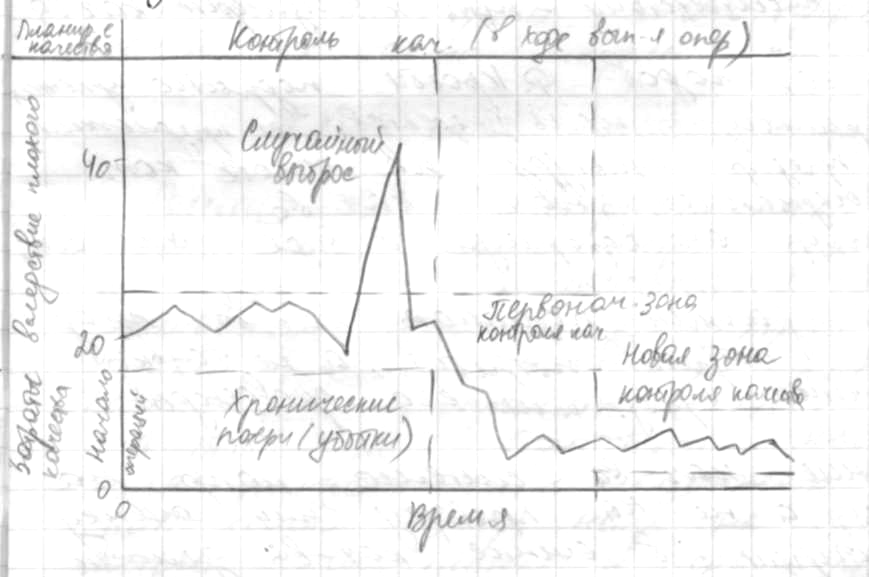 Планир-е
качества
Контроль кач. (в ходе вып-я опер)
Затраты вследствие плохого
качества
40
Случайный
выброс
20
Первонач. зона
контроля кач
Новая зона
контроля качества
Хронические
потри (убытки)
Начало
операций
0
0
Время